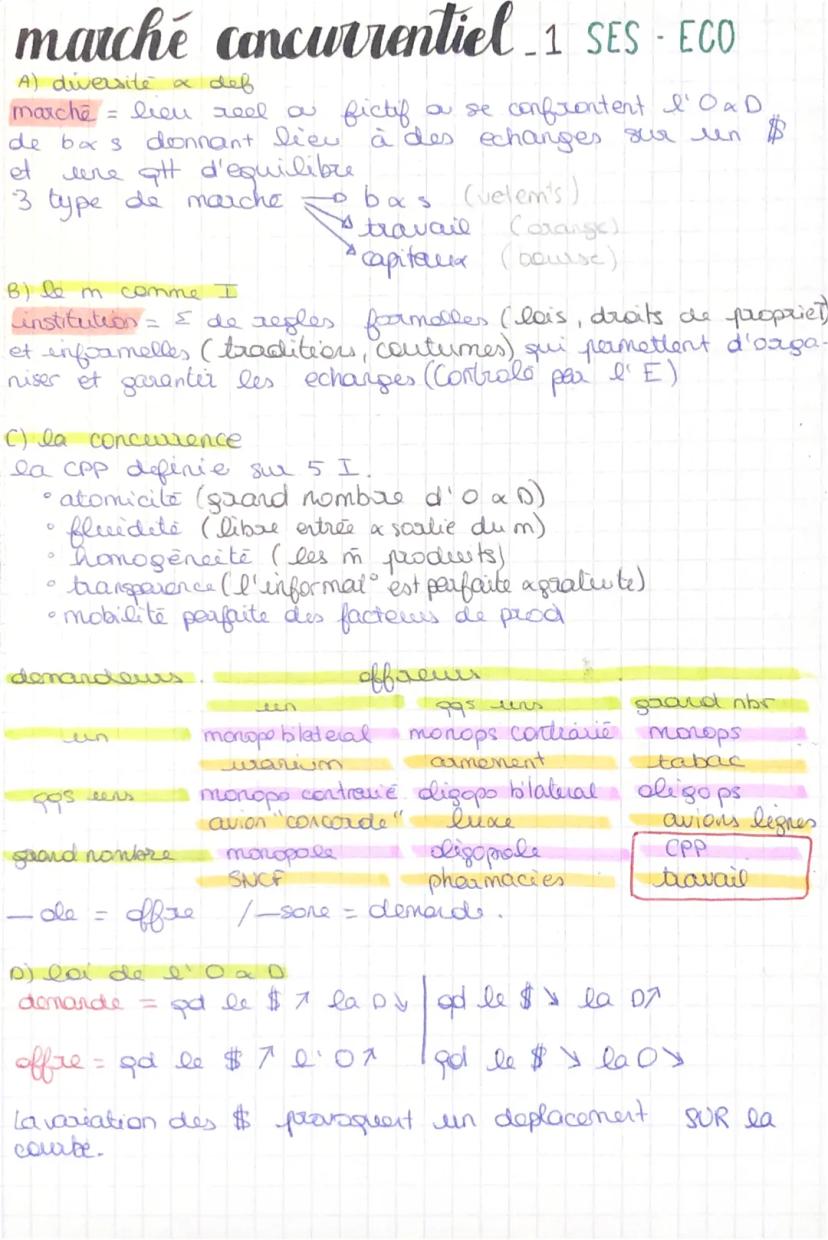 marché concurrentiel _ 1 SES - ECO
A) diversité & def
marché = lieu reel ou fictif ou se confrontent l'O & D
de b & s donnant lieu à des echanges sur un $
et une qtt d'equilibre
3 type de marche → b & s (vetem's)
travail (orange)
capitaux (bourse)
B) le m comme I
institution = Σ de regles formelles (lois, droits de propriet)
et informelles (traditions, coutumes) qui permettent d'orga-
niser et garantir les echanges (Controlé par l'E)
C) la concurrence
la CPP definie sur 5 I.
° atomicité (grand nombre d'O & D)
° fluidité (libre entrée & sortie du m)
° homogéneité (les m̂ produits)
° transparence (l'informat° est parfaite & gratuite)
° mobilité parfaite des facteurs de prod
demandeurs. offreurs
un qqs uns grand nbr
un monopo bilateral monops contrarié monops
uranium armement tabac
qqs uns monopo contrarié oligopo bilateral oligops
avion "concorde" luxe avions lignes
grand nombre monopole oligopole CPP
SNCF pharmacies travail
— ole = offre / —sone = demande.
D) loi de l'O & D
demande = qd le $ ↗ la D ↘ | qd le $ ↘ la D ↗
offre = qd le $ ↗ l'O ↗ | qd le $ ↘ la O ↘
la variation des $ provoquent un deplacement SUR la
courbe.